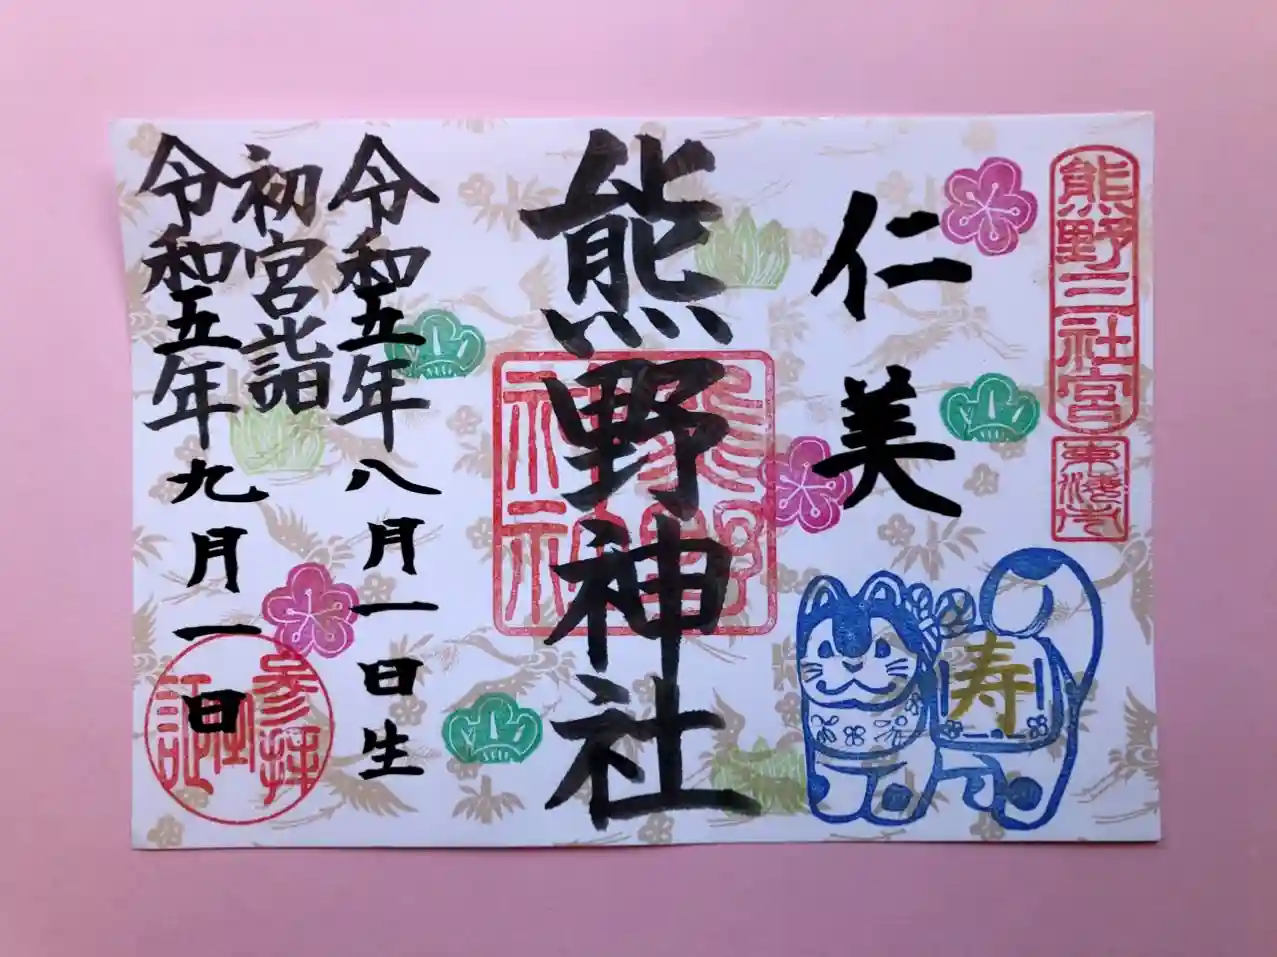 熊野三社宮
仁美
寿
熊野神社
熊野神社
令和五年八月一日生
初宮詣
令和五年九月一日
参拝証